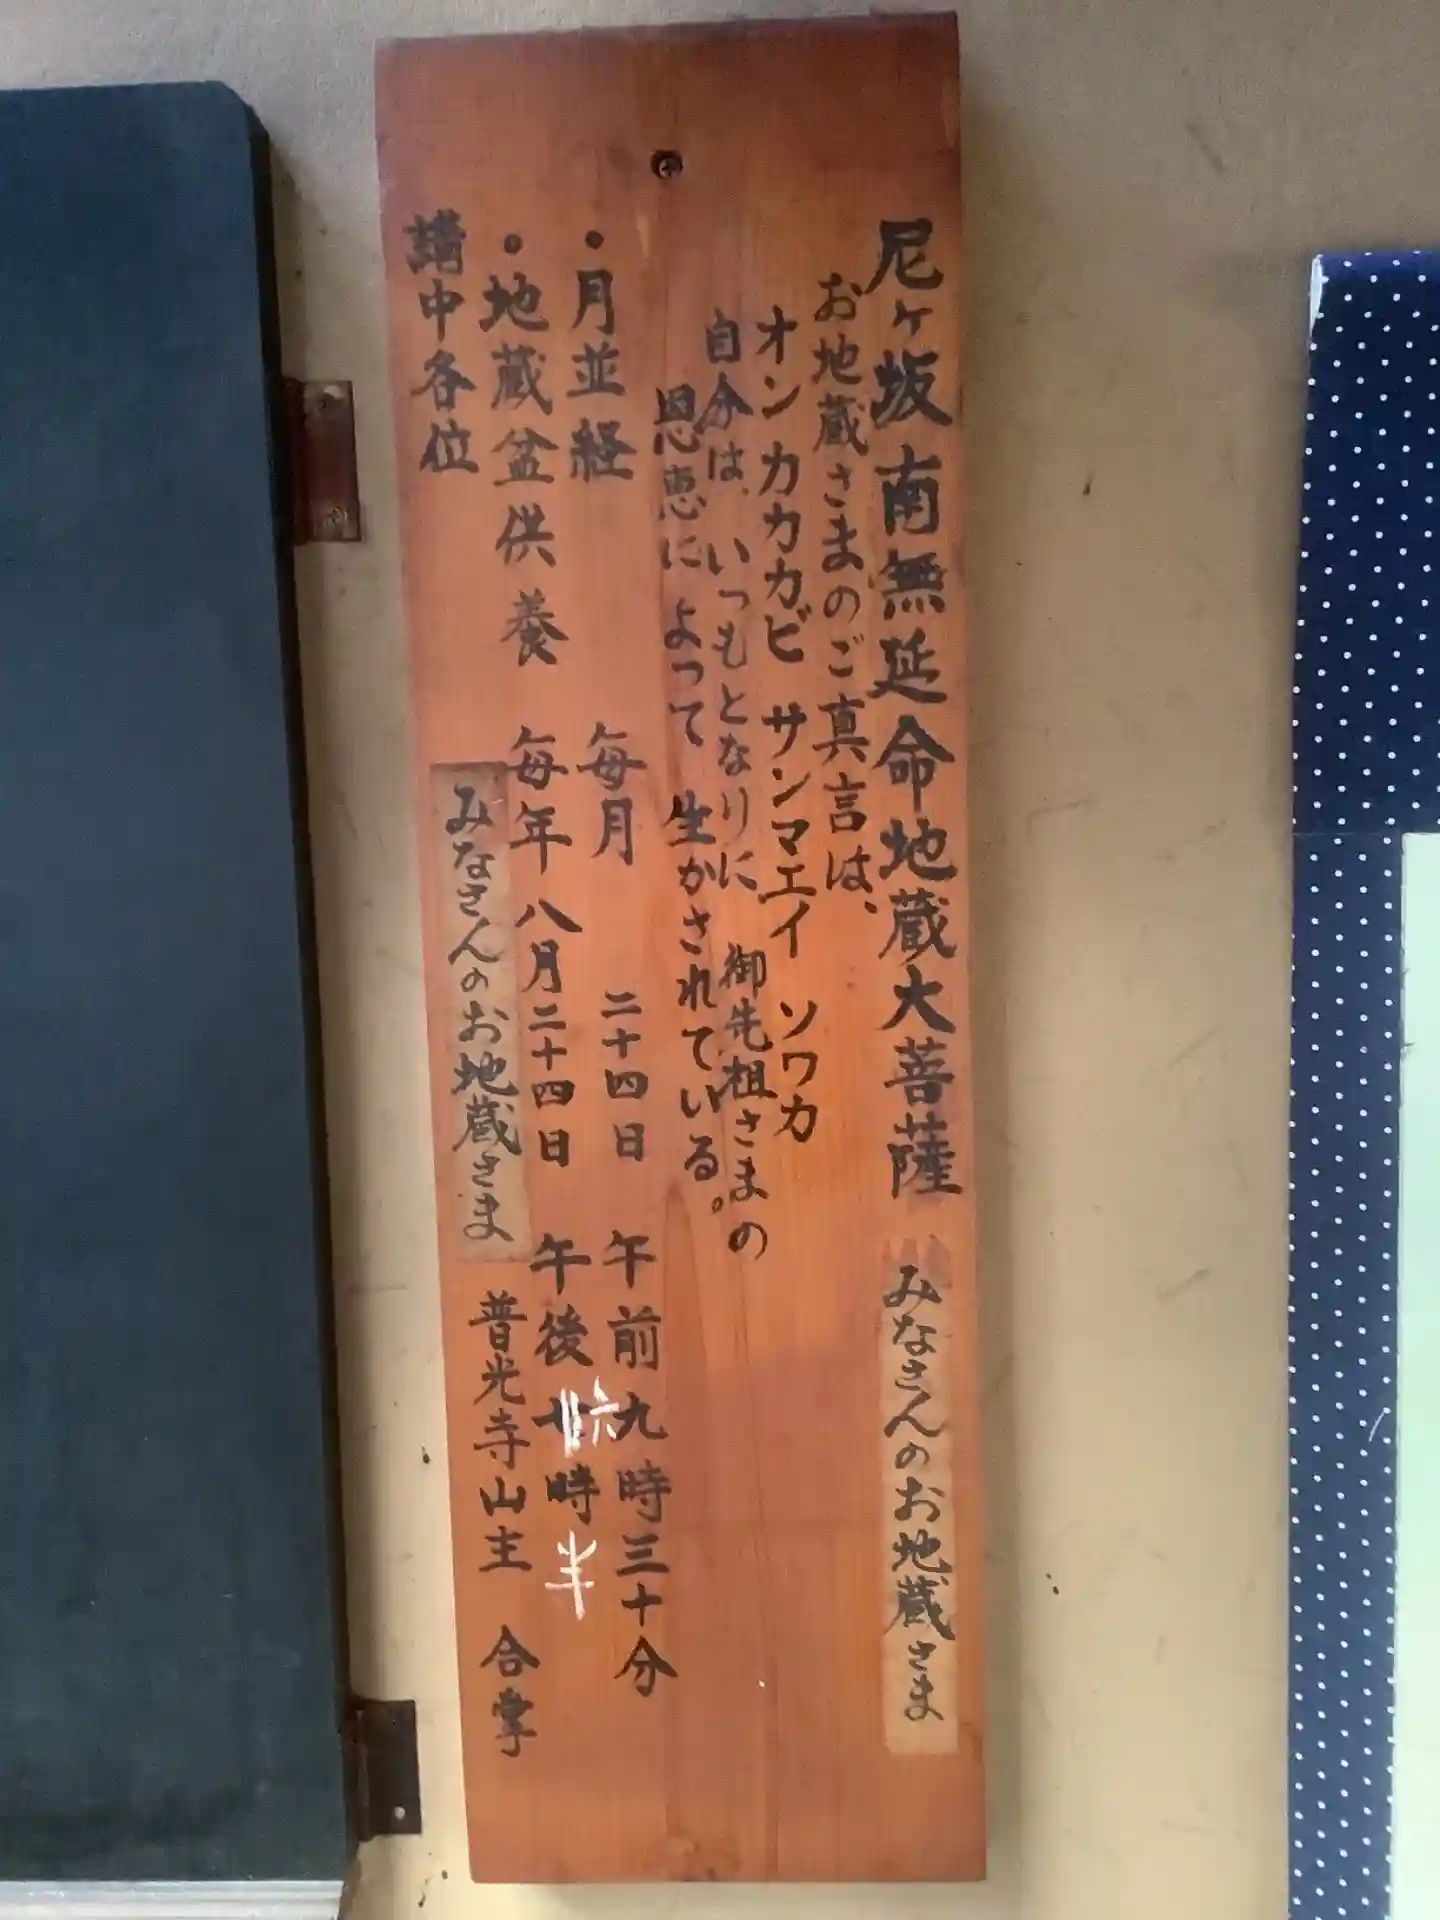 尼ヶ坂南無延命地蔵大菩薩 みなさんのお地蔵さま
お地蔵さまのご真言は、
オン カカカビ サンマエイ ソワカ
自分は、いつもとなりに 御先祖さまの
恩恵に よって 生かされている。
・月並経 毎月 二十四日 午前九時三十分
・地蔵盆供養 毎年 八月二十四日 午後六時半
講中各位 みなさんのお地蔵さま 普光寺山主 合掌